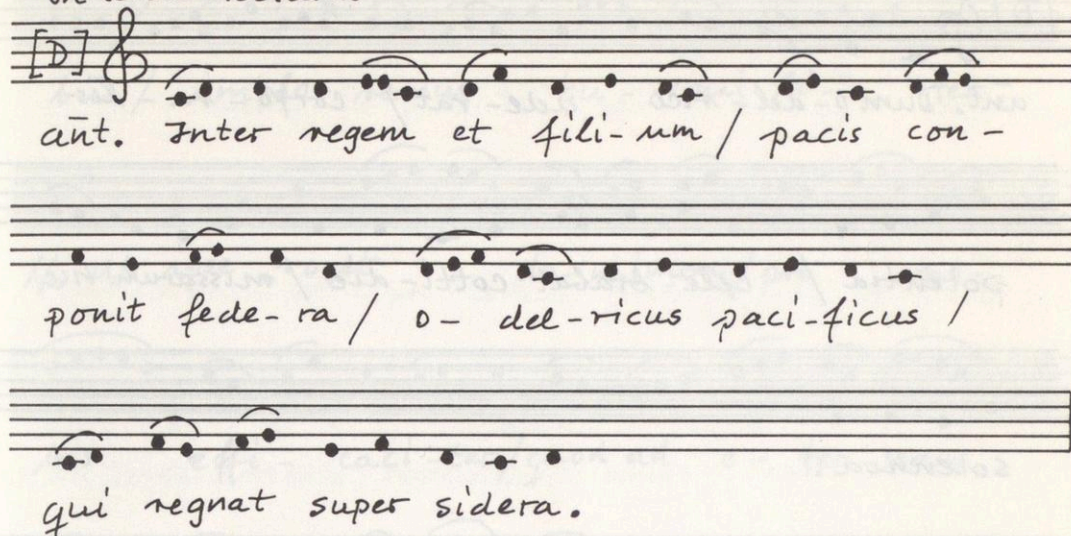 [D]
añt. Inter regem et fili-um / pacis con-
ponit fede-ra / o- del-ricus paci-ficus /
qui regnat super sidera.